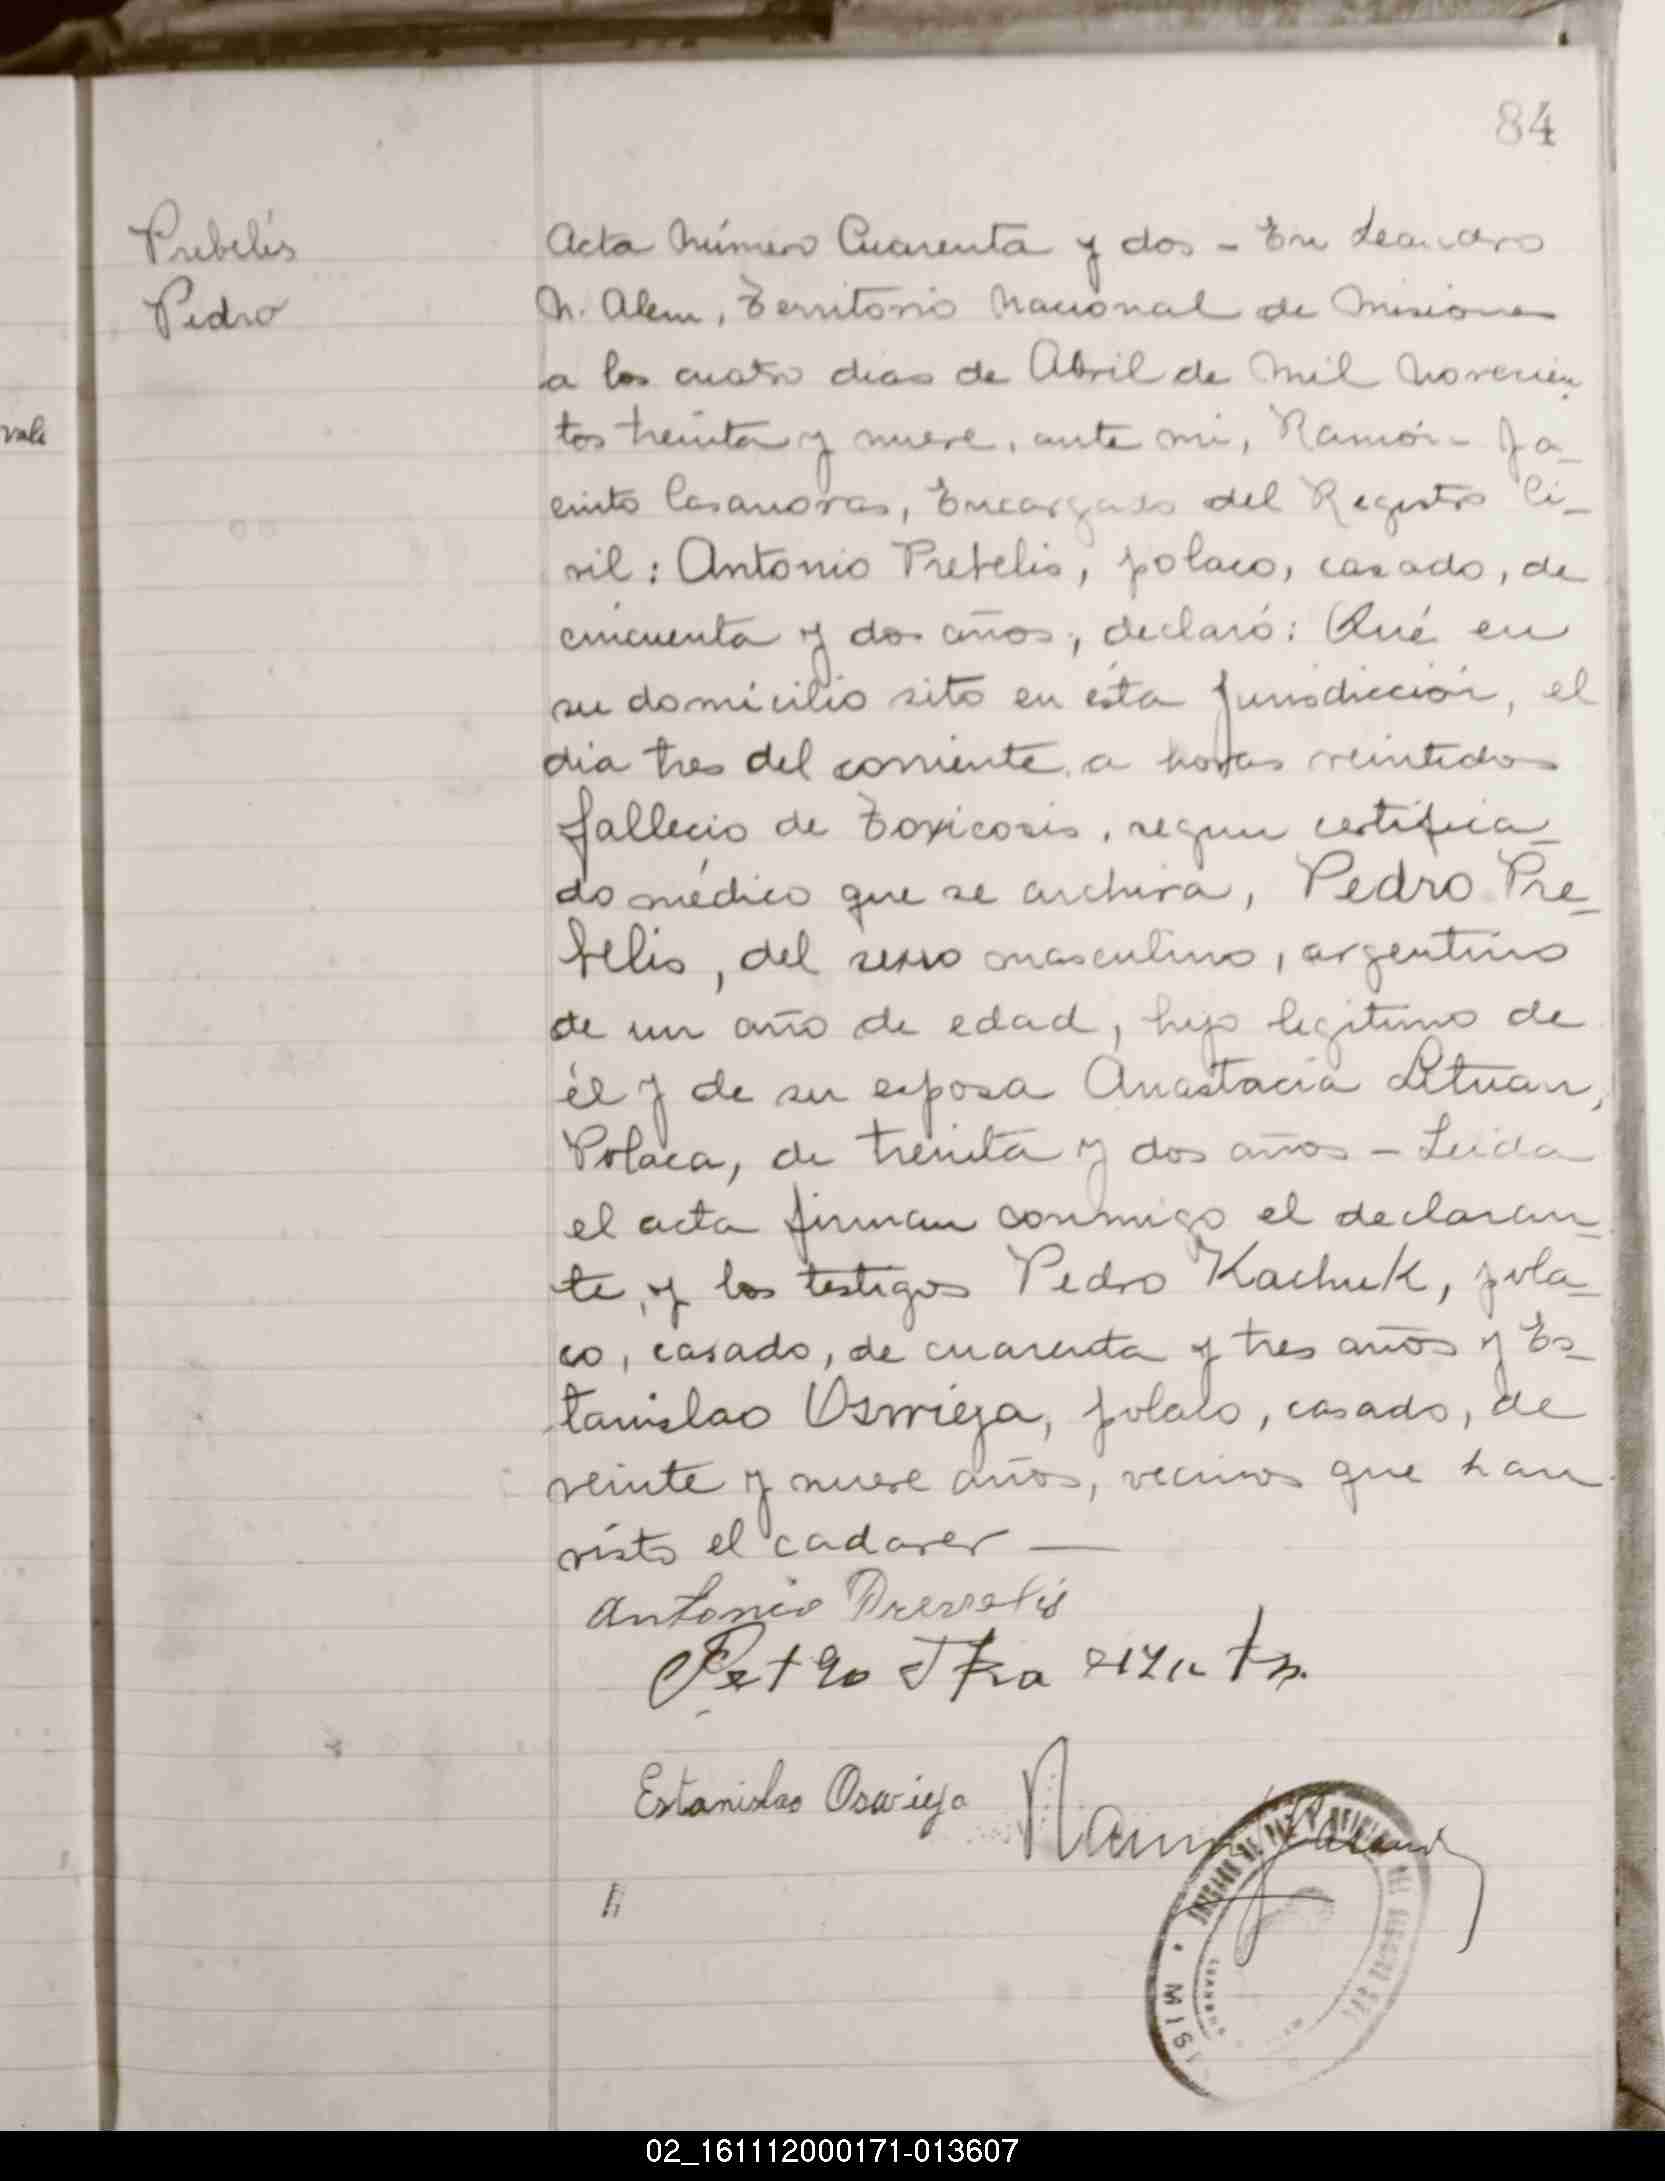 84
Prebelis
Pedro
vale
Acta Número Cuarenta y dos - En Leandro
N. Alem, Territorio Nacional de Misiones
a los cuatro dias de Abril de Mil Novecien-
tos treinta y nueve, ante mi, Ramón Ja-
cinto Casanovas, Encargado del Registro Ci-
vil: Antonio Prebelis, polaco, casado, de
cincuenta y dos años, declaró: Qué en
su domicilio sito en ésta Jurisdicción, el
dia tres del corriente a horas veintidos
fallecio de Toxicosis, segun certifica-
do médico que se archiva, Pedro Pre-
belis, del sexo masculino, argentino
de un año de edad, hijo legitimo de
él y de su esposa Anastacia Lituan,
Polaca, de treinta y dos años - Leida
el acta firman conmigo el declaran-
te, y los testigos Pedro Kachuk, pola-
co, casado, de cuarenta y tres años y Es-
tanislao Oswieja, polaco, casado, de
veinte y nueve años, vecinos que han
visto el cadaver —
Antonio
Estanislao Oswieja
JUZGADO DE PAZ Y OFICINA DEL REGISTRO CIVIL
MIS
02_161112000171-013607